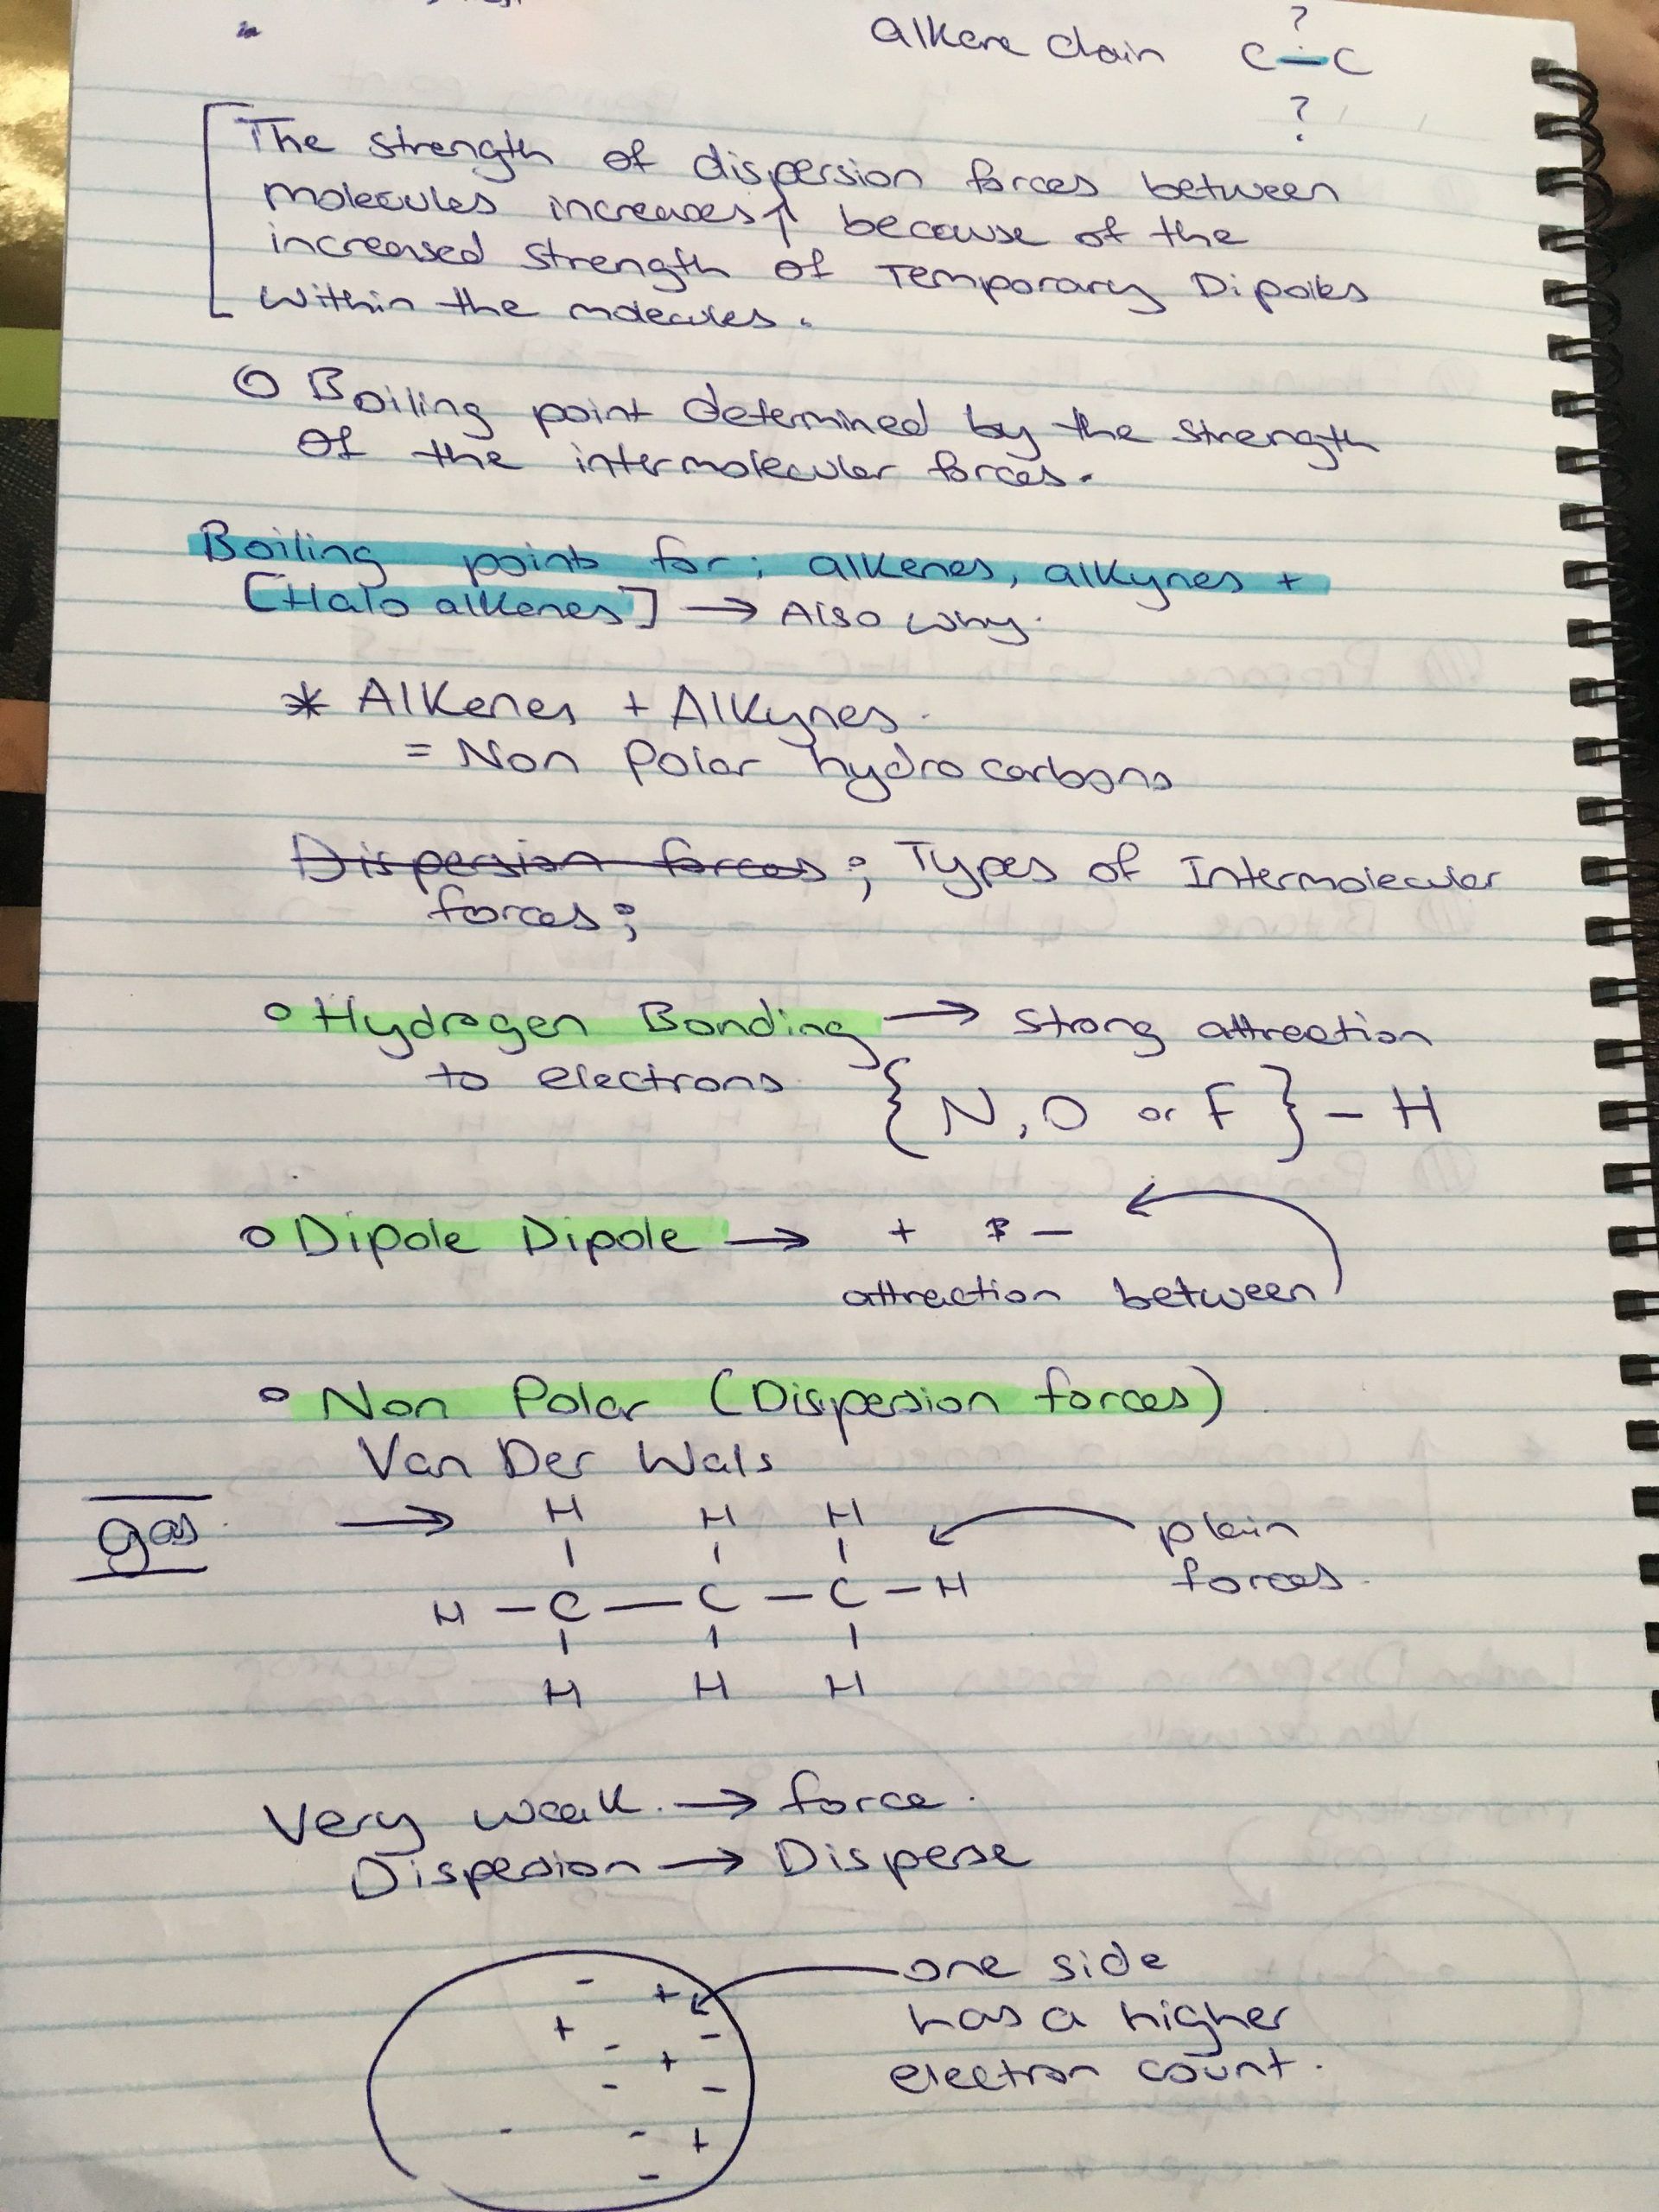 alkene chain C - C
?
?
The strength of dispersion forces between
molecules increases ↑ because of the
increased strength of Temporary Dipoles
Within the molecules.
Boiling point determined by the strength
Of the intermolecular forces.
Boiling points for; alkenes, alkynes +
[Halo alkenes] → Also why.
* Alkenes + Alkynes.
= Non Polar hydrocarbons
Dispersion forces; Types of Intermolecular
forces;
Hydrogen Bonding → strong attraction
to electrons
{ N, O or F } - H
Dipole Dipole → + -
attraction between
Non Polar (Dispersion forces)
Van Der Wals
gas → H H H plain
forces.
H - C - C - C - H
H H H
Very weak. → force.
Dispersion → Disperse
- + one side
+ - - has a higher
+ electron count.
- -
- - +
-